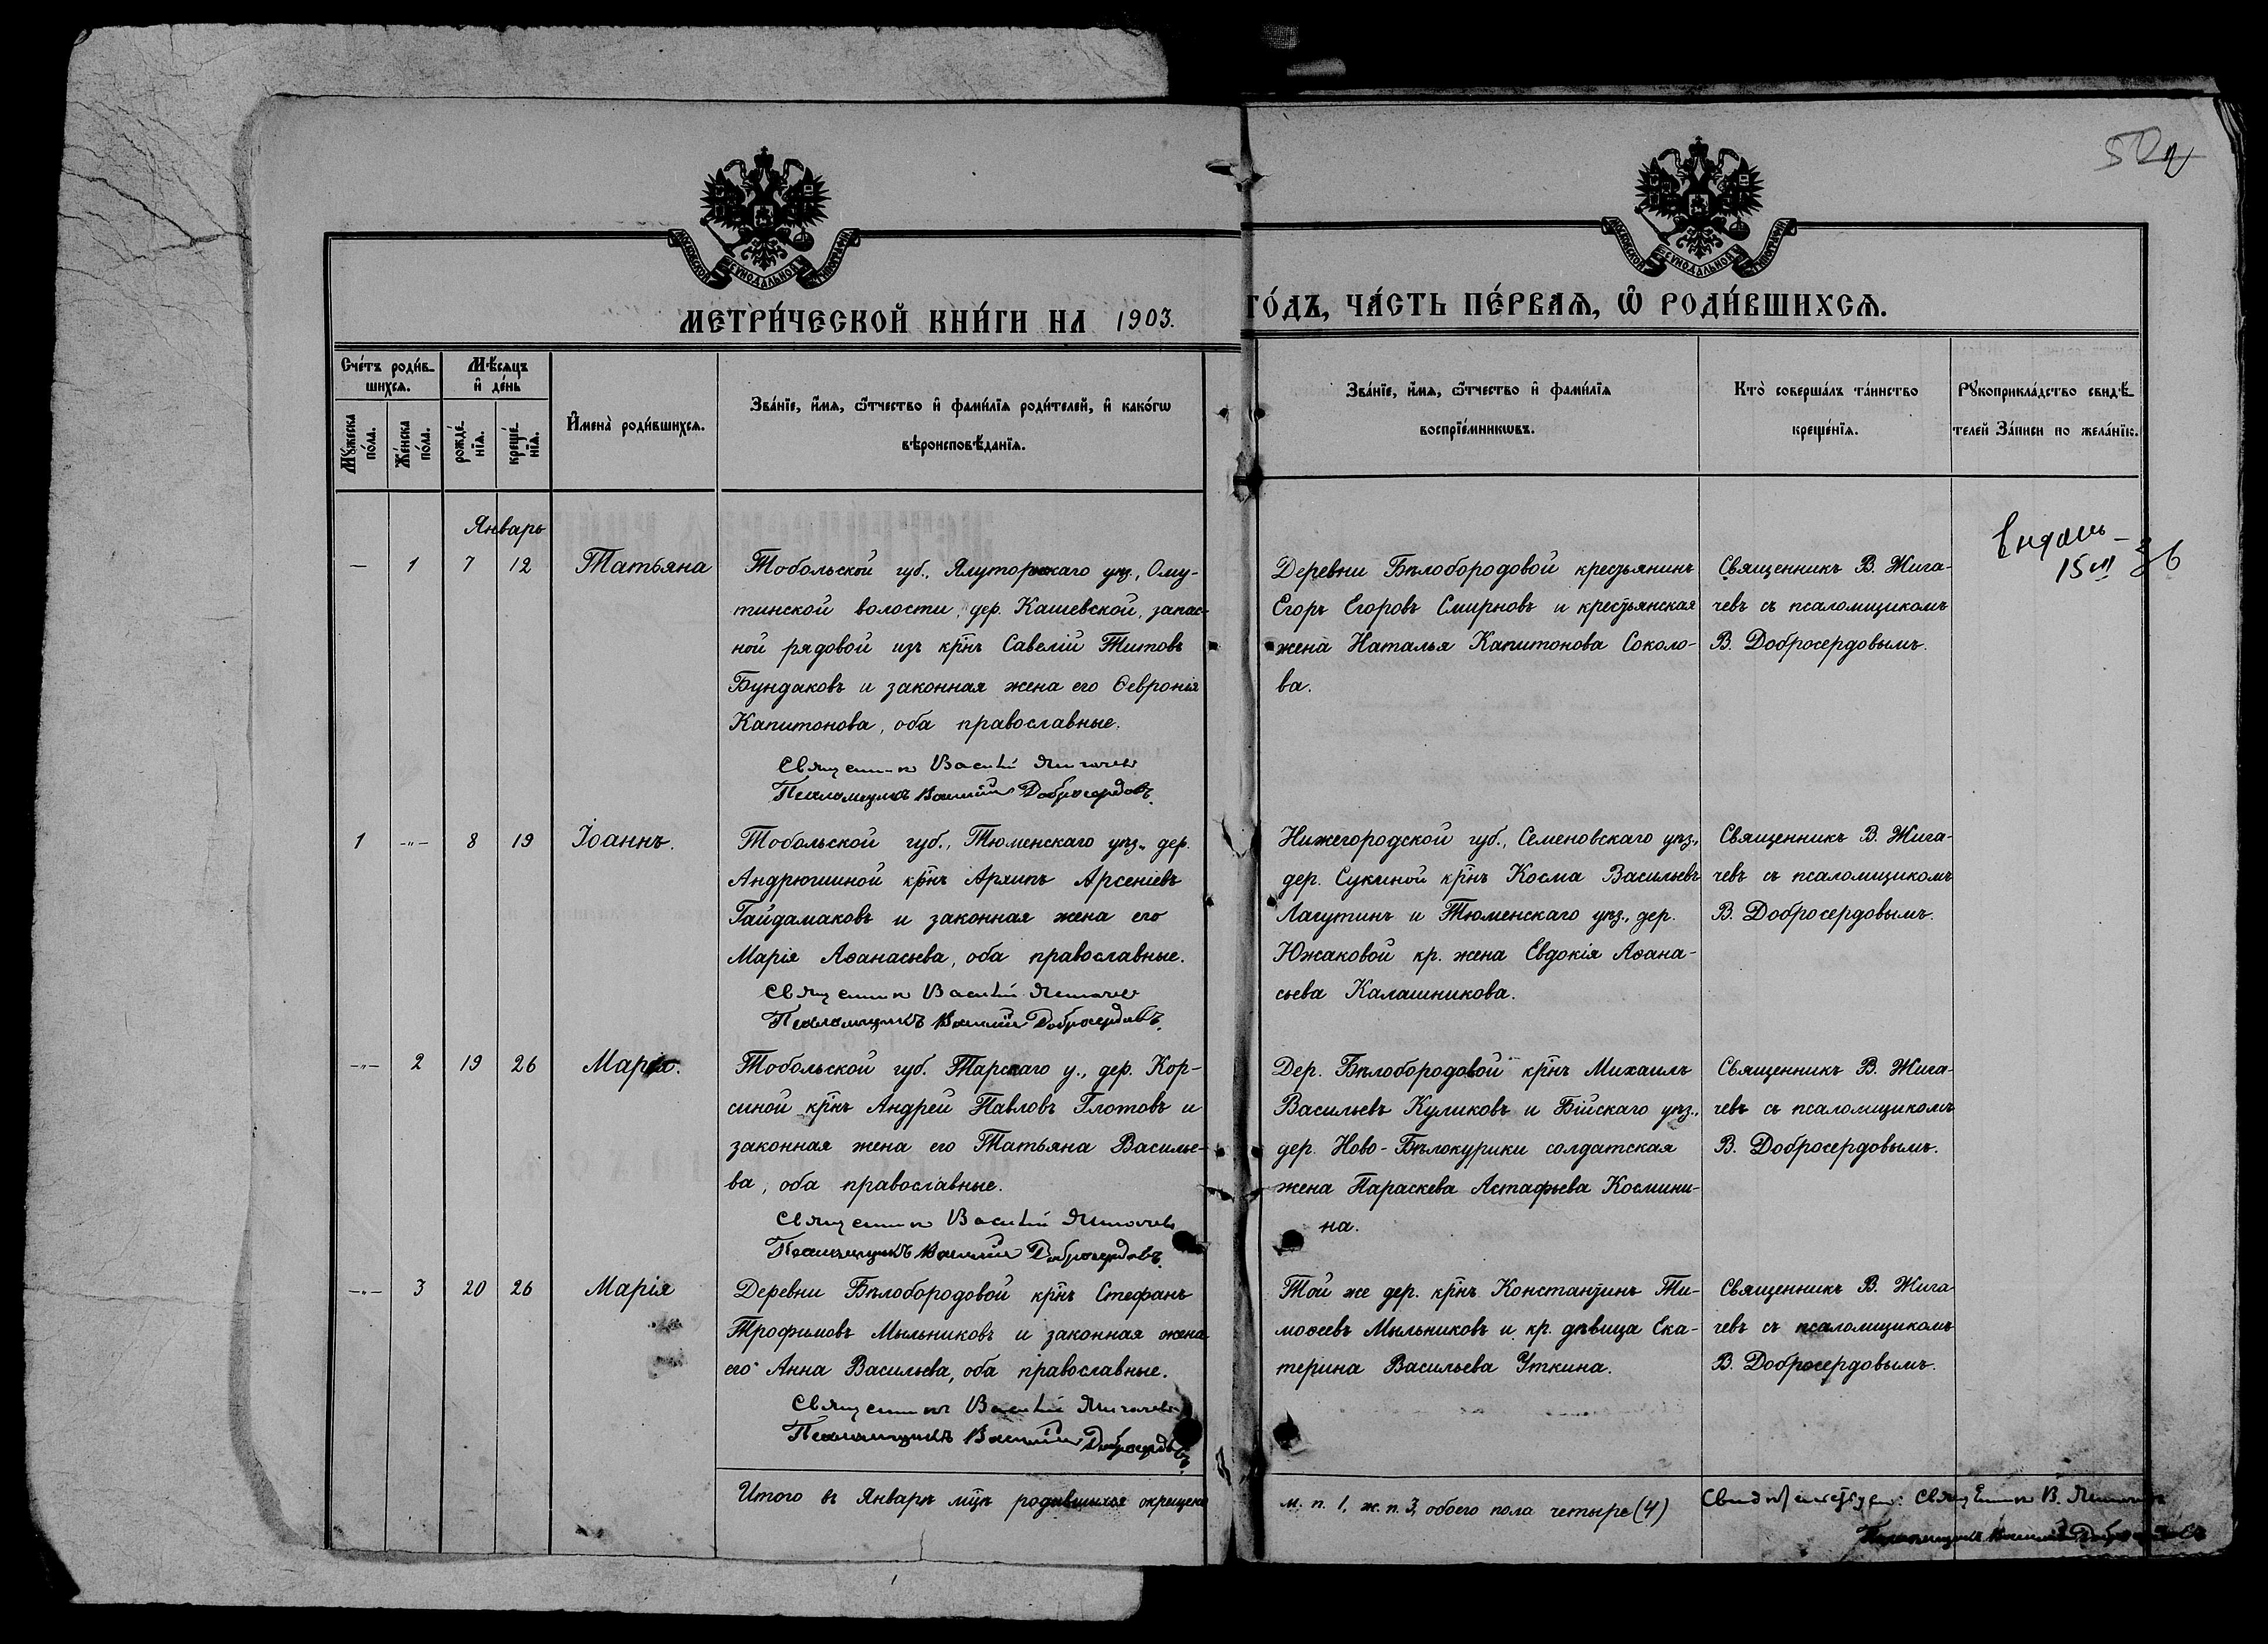 МОСКОВСКОЙ СУНОДАЛЬНОЙ ТИПОГРАФІИ
МОСКОВСКОЙ СУНОДАЛЬНОЙ ТИПОГРАФІИ
МЕТРИ́ЧЕСКОЙ КНИ́ГИ НА 1903.
ГО́ДЪ, ЧА́СТЬ ПЕ́РВАѦ, Ѽ РОДИ́ВШИХСѦ.
Сче́тъ роди́в-
шихсѧ.
Мꙋ́жеска
по́ла.
Же́нска
по́ла.
Мѣ́сѧцъ
и҆ де́нь
рожде́-
нїѧ.
креще́-
нїѧ.
И҆мена̀ роди́вшихсѧ.
Зва́нїе, и҆́мѧ, ѻ҆́тчество и҆ фами́лїѧ роди́телей, и҆ како́гѡ
вѣроисповѣ́данїѧ.
Зва́нїе, и҆́мѧ, ѻ҆́тчество и҆ фами́лїѧ
воспрїе́мникѡвъ.
Кто̀ соверша́лъ та́инство
креще́нїѧ.
Рꙋкоприкла́дство свидѣ́-
телей За́писи по жела́нїю.
Январь
— 1 7 12 Татьяна
Тобольской губ., Ялуторовскаго уѣз., Ому-
тинской волости, дер. Кашевской, запас-
ной рядовой изъ крн̃ъ Савелій Титовъ
Бундаковъ и законная жена его Ѳевронія
Капитонова, оба православные.
Священникъ Василій Жигачевъ
Псаломщикъ Василій Добросердовъ.
Деревни Бѣлобородовой крестьянинъ
Егоръ Егоровъ Смирновъ и крестьянская
жена Наталья Капитонова Соколо-
ва.
Священникъ В. Жига-
чевъ съ псаломщикомъ
В. Добросердовымъ.
15 VII 36
1 -"- 8 19 Іоаннъ.
Тобольской губ., Тюменскаго уѣз., дер.
Андрюшиной крн̃ъ Архипъ Арсеніевъ
Гайдамаковъ и законная жена его
Марія Аѳанасьева, оба православные.
Священникъ Василій Жигачевъ
Псаломщикъ Василій Добросердовъ.
Нижегородской губ., Семеновскаго уѣз.,
дер. Сукиной крн̃ъ Косма Васильевъ
Лагутинъ и Тюменскаго уѣз., дер.
Южаковой кр. жена Евдокія Аѳана-
сьева Калашникова.
Священникъ В. Жига-
чевъ съ псаломщикомъ
В. Добросердовымъ.
-"- 2 19 26 Марія.
Тобольской губ. Тарскаго у., дер. Кор-
синой крн̃ъ Андрей Павловъ Глотовъ и
законная жена его Татьяна Василье-
ва, оба православные.
Священникъ Василій Жигачевъ
Псаломщикъ Василій Добросердовъ.
Дер. Бѣлобородовой крн̃ъ Михаилъ
Васильевъ Куликовъ и Бійскаго уѣз.,
дер. Ново-Бѣлокурики солдатская
жена Параскева Астафьева Космини-
на.
Священникъ В. Жига-
чевъ съ псаломщикомъ
В. Добросердовымъ.
-"- 3 20 26 Марія
Деревни Бѣлобородовой крн̃ъ Стефанъ
Трофимовъ Мыльниковъ и законная жена
его Анна Васильева, оба православные.
Священникъ Василій Жигачевъ
Псаломщикъ Василій Добросердовъ.
Той же дер. крн̃ъ Константинъ Ти-
моѳеевъ Мыльниковъ и кр. дѣвица Ека-
терина Васильева Уткина.
Священникъ В. Жига-
чевъ съ псаломщикомъ
В. Добросердовымъ.
Итого въ Январѣ мц̃ѣ родившихся окрещено
м. п. 1, ж. п. 3, обоего пола четыре (4)
Свидѣтельствуемъ: Священникъ В. Жигачевъ
Псаломщикъ Василій Добросердовъ